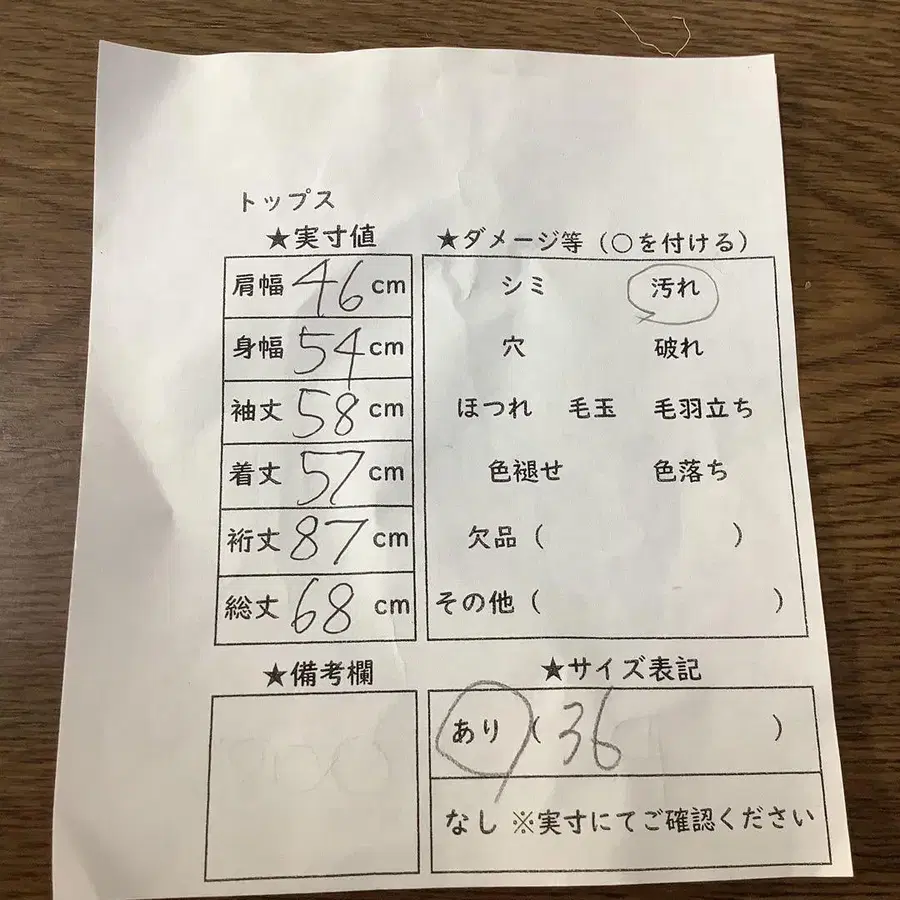 トップス
★実寸値
肩幅 46 cm
身幅 54 cm
袖丈 58 cm
着丈 57 cm
裄丈 87 cm
総丈 68 cm
★ダメージ等（○を付ける）
シミ 汚れ
穴 破れ
ほつれ 毛玉 毛羽立ち
色褪せ 色落ち
欠品（ ）
その他（ ）
★備考欄
★サイズ表記
あり（36 ）
なし ※実寸にてご確認ください